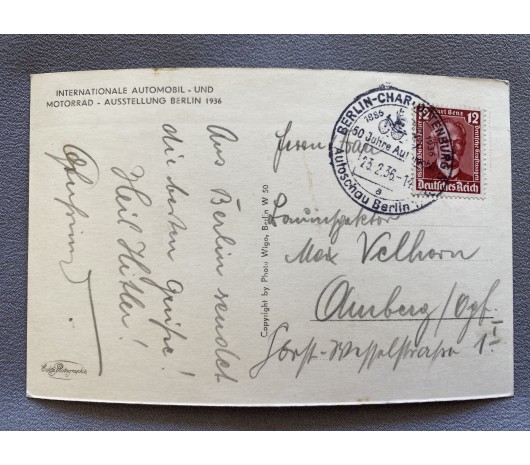 INTERNATIONALE AUTOMOBIL - UND
MOTORRAD - AUSSTELLUNG BERLIN 1936
Aus Berlin sendet
die besten Grüße!
Heil Hitler!
Copyright by Photo Wigo, Berlin W 50
Echte Photographie
BERLIN-CHARLOTTENBURG
1886
50 Jahre Auto
23.2.36-1
a
Autoschau Berlin
12 12
Deutsches Reich
Herrn
Bauinspektor
Max Velhorn
Amberg/Opf.
Horst-Wesselstrasse 1